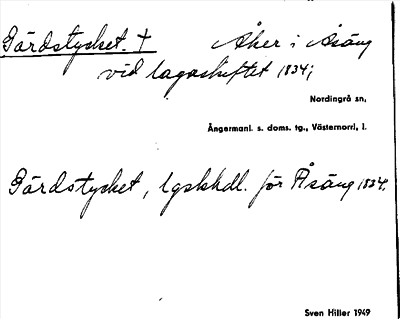 Gärdstycket † Åker i Åsäng
vid lagaskiftet 1834;
Nordingrå sn,
Ångermanl. s. doms. tg., Västernorrl, l.
Gärdstycket, lgskhdl. för Åsäng 1834.
Sven Hiller 1949